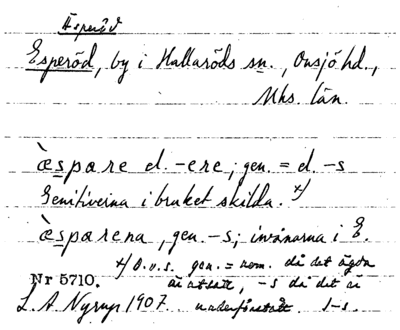 Äsperöd
Esperöd, by i Hallaröds sn., Onsjö hd.,
Mhs. län.
æspare d. -ere; gen. = d. -s
Genitiverna i bruket skilda. x)
æsparena, gen. -s; invånarna i E.
x) D.v.s. gen. = nom. då det ägda
är utsatt, -s då det är
Nr 5710.
L. A. Nyrup 1907. underförstått. 1-s.